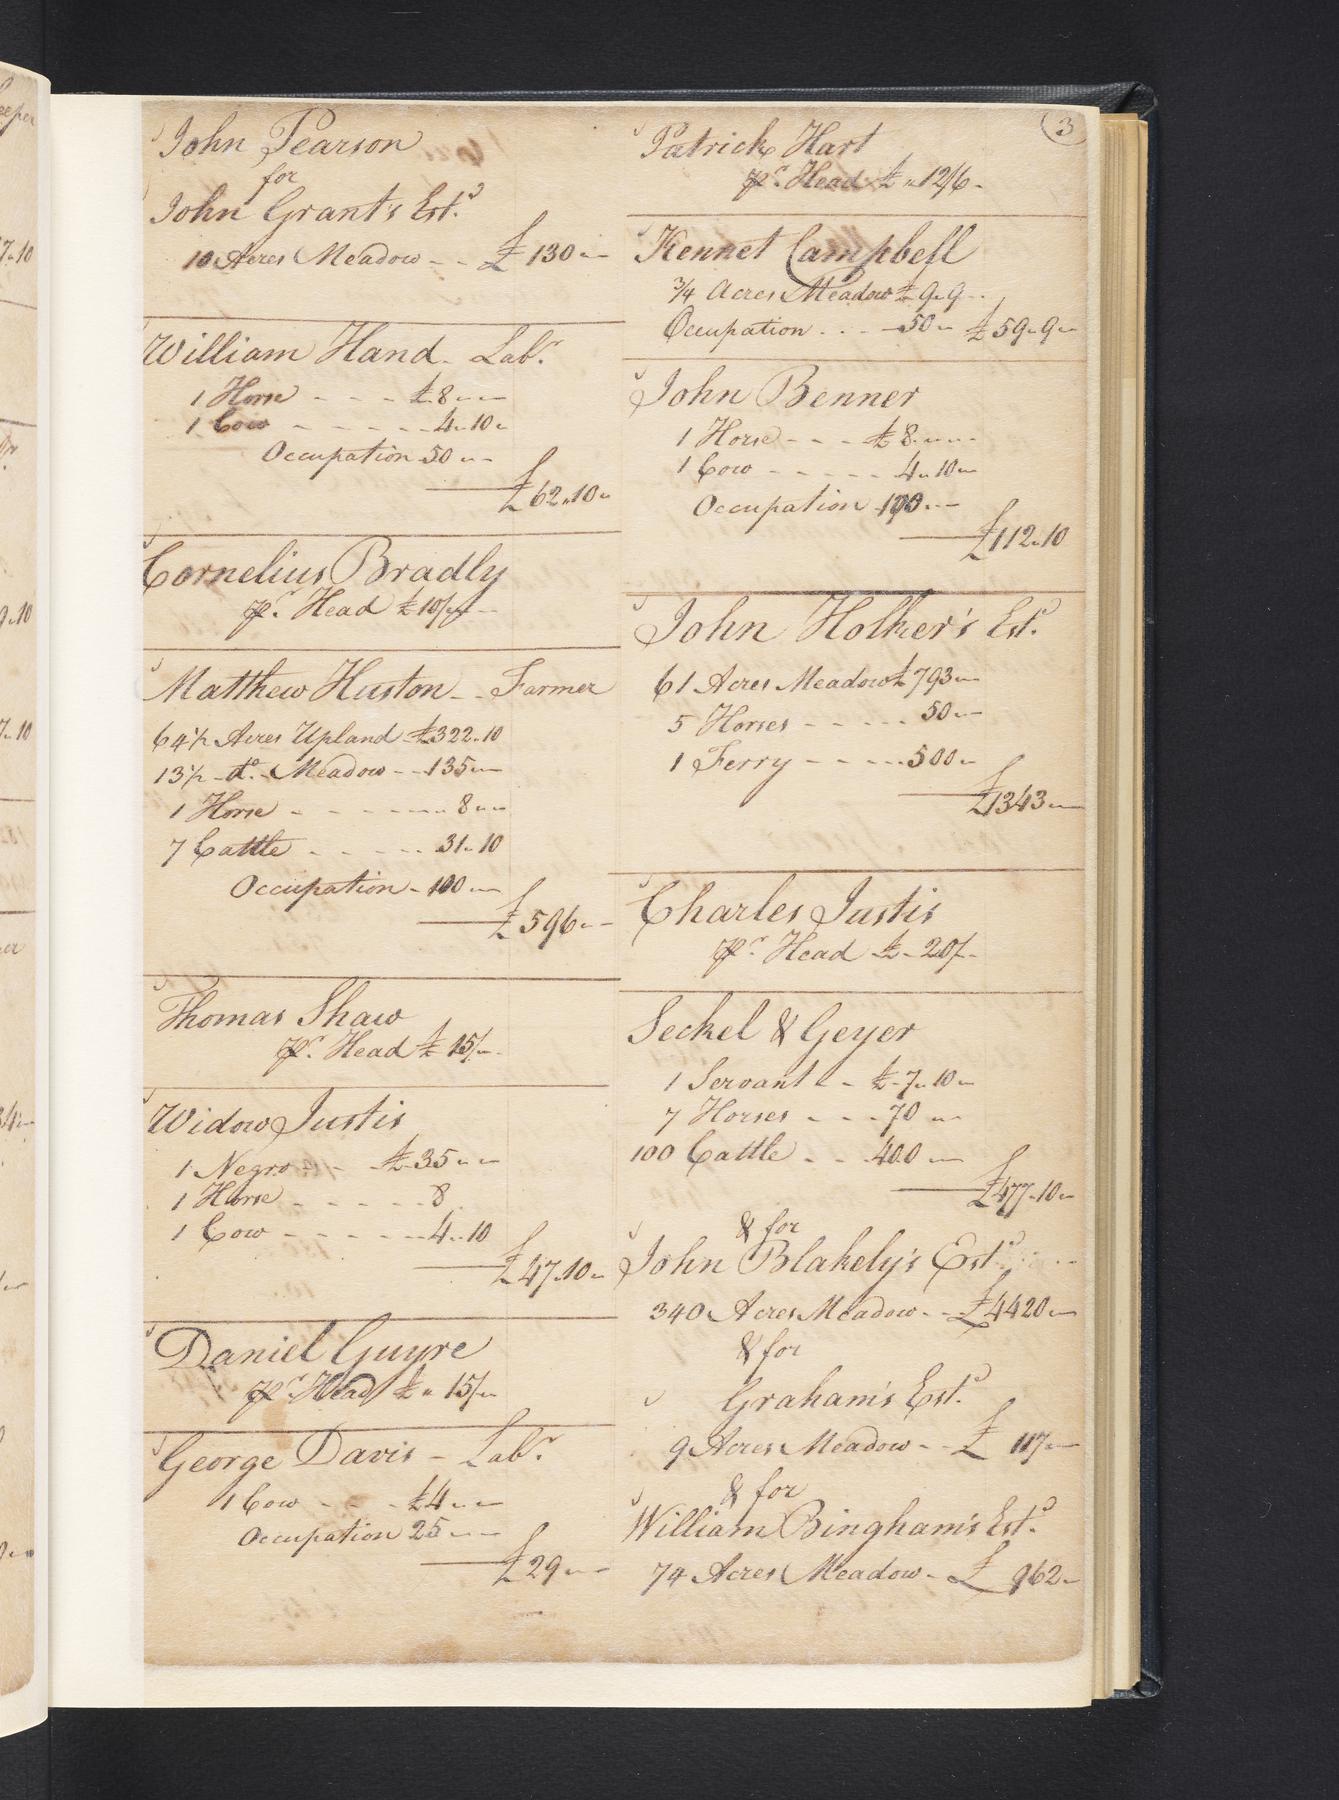 3
John Pearson
for
John Grant's Est.
10 Acres Meadow - - £130 " -
William Hand - Labr.
1 Horse - - - £8 " " -
1 Cow - - - - - 4 " 10 "
Occupation 50 " " -
£62 " 10 "
Cornelius Bradly
pr. Head £10/ " -
Matthew Huston - Farmer
64 1/2 Acres Upland £322 " 10
13 1/2 - do. - Meadow - - 135 " -
1 Horse - - - - - 8 " " -
7 Cattle - - - - - 31 " 10
Occupation - 100 " -
£596 " -
Thomas Shaw
pr. Head £15/ " -
Widow Justis
1 Negro - - £35 " " -
1 Horse - - - - - 8
1 Cow - - - - - - 4 " 10
£47 " 10 "
Daniel Guyre
pr. Head £ " 15/ " -
George Davis - Labr.
1 Cow - - - £4 " " -
Occupation 25 " " -
£29 " " -
Patrick Hart
pr. Head £ " 12/6 -
Kennet Campbell
3/4 Acres Meadow £9 " 9 - -
Occupation - - - - 50 " - £59 " 9 " -
John Benner
1 Horse - - - £8 " " -
1 Cow - - - - - 4 " 10 " -
Occupation 100 " -
£112 " 10
John Holker's Est.
61 Acres Meadow £793 " -
5 Horses - - - - - 50 " -
1 Ferry - - - - - 500 " -
£1343 " -
Charles Justis
pr. Head £ - 20/ -
Seckel & Geyer
1 Servant - - £7 " 10 " -
7 Horses - - - - 70 " -
100 Cattle - - - 400 " -
£477 " 10 " -
& for
John Blakely's Est.
340 Acres Meadow - - £4420 " -
& for
Graham's Est.
9 Acres Meadow - - £117 " -
& for
William Bingham's Est.
74 Acres Meadow - £962 " -